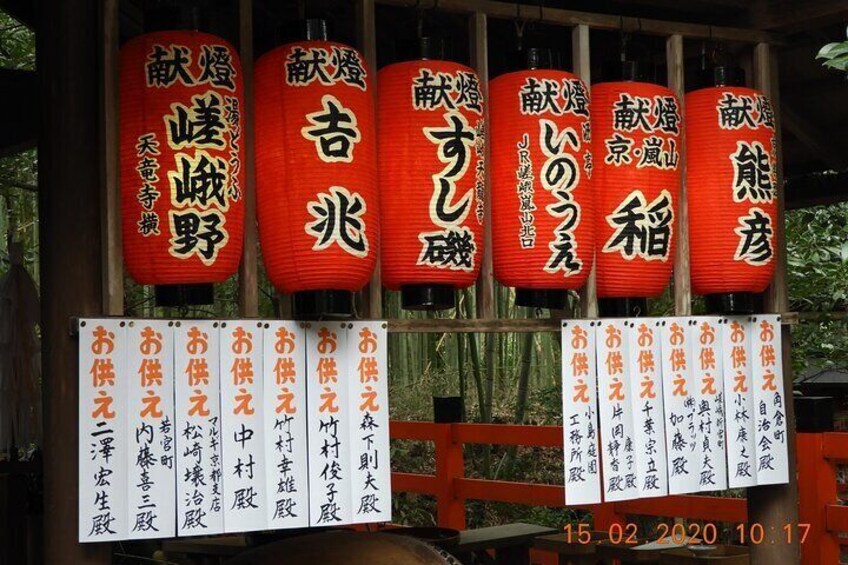 献燈
湯どうふ
嵯峨野
天竜寺横
献燈
吉兆
献燈
嵯峨天龍寺
すし磯
献燈
JR嵯峨嵐山駅北口
いのうえ
献燈
京・嵐山
稲
献燈
熊彦
お供え
二澤宏生殿
お供え
若宮町
内藤喜三殿
お供え
マルキ京都支店
松崎壌治殿
お供え
中村殿
お供え
竹村幸雄殿
お供え
竹村俊子殿
お供え
森下則夫殿
お供え
小島庭園
工務所殿
お供え
片岡静香殿
康子殿
お供え
千葉宗立殿
お供え
加藤殿
お供え
奥村貞殿
お供え
小林康之殿
お供え
角倉町
自治会殿
15.02.2020 10:17